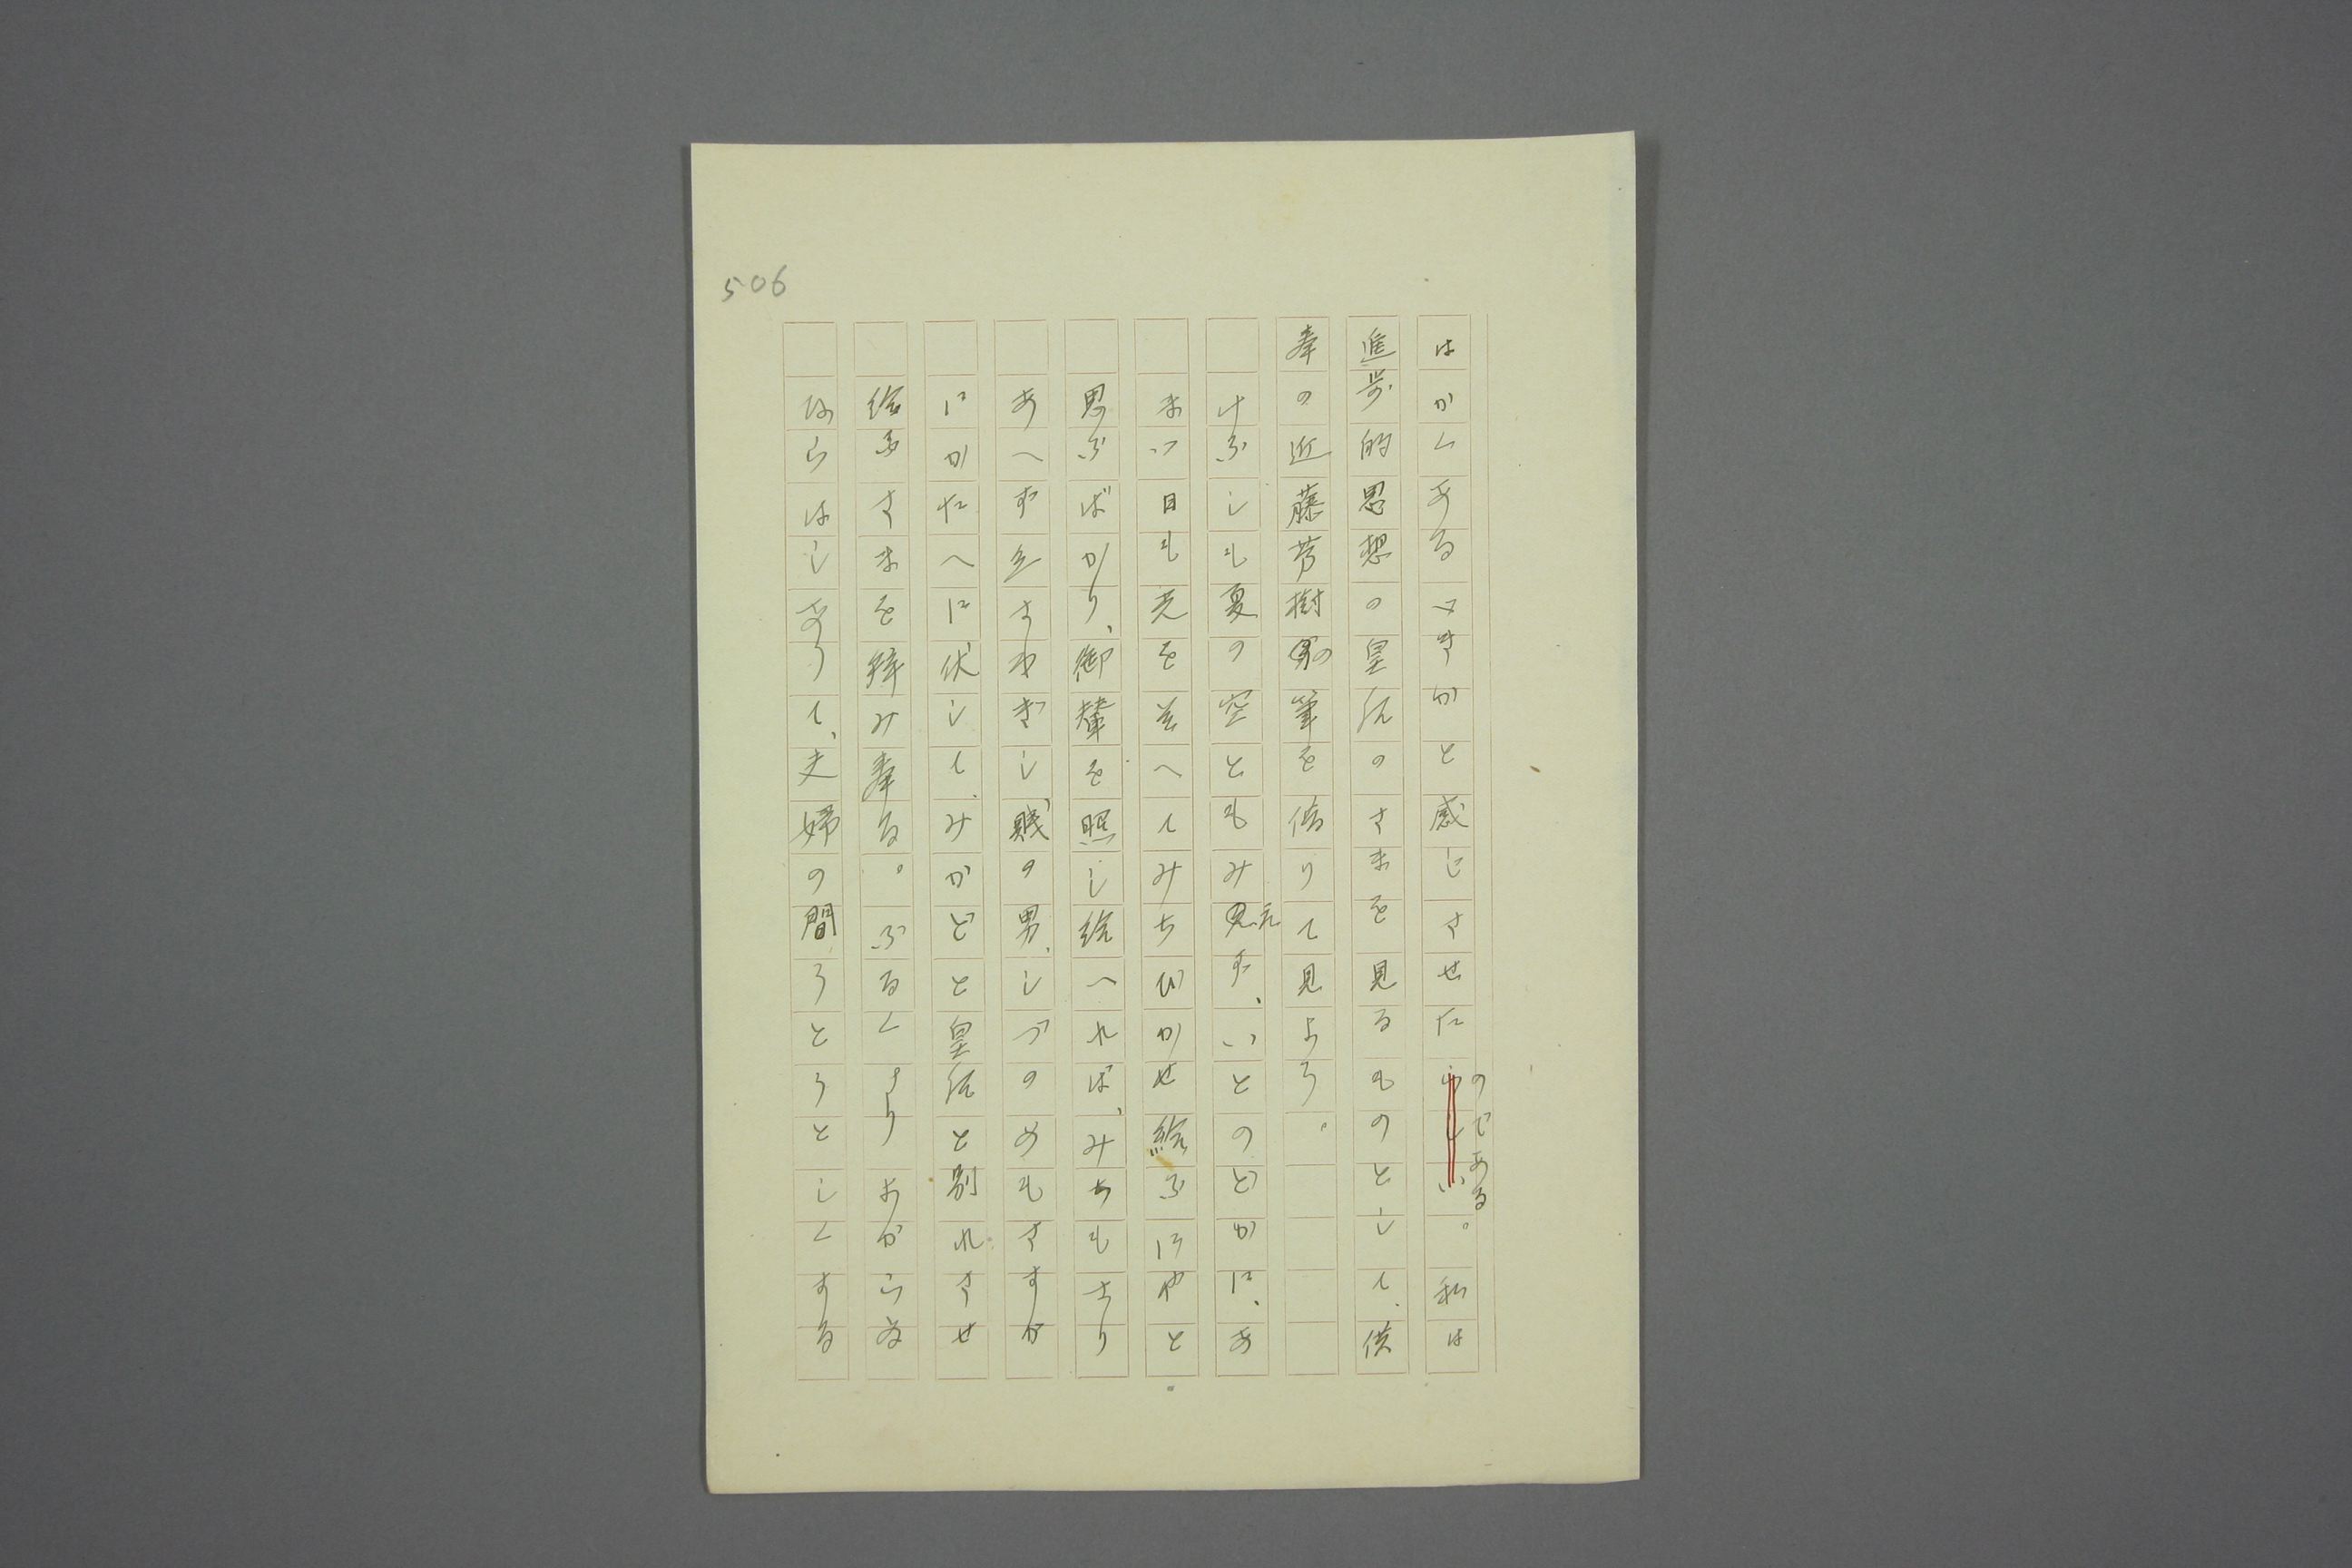 506
はかくあるべきかと感じさせたのである。私は
進歩的思想の皇后のさまを見るものとして、供
奉の近藤芳樹の筆を借りて見よう。
けふしも夏の空ともみえず、いとのどかに、あ
まつ日も光をそへてみちびかせ給ふにやと
思ふばかり、御輦を照し給へれば、みちもさり
あへず立さわぎし賤の男、しづのめもさすが
にかたへに伏して、みかどと皇后と別れさせ
給ふさまを拝み奉る。ふるくよりあからね
ならはしありて、夫婦の間うとうとしくする